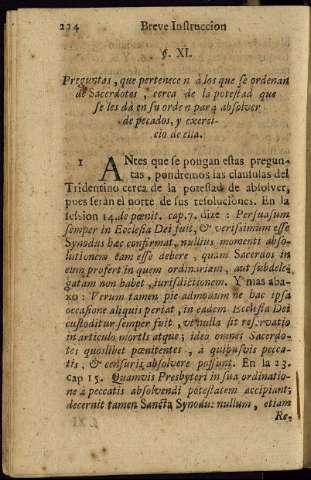 224 Breve Instruccion
§. XI.
Preguntas, que pertenecen à los que se ordenan
de Sacerdotes, cerca de la potestad que
se les dà en su orden para absolver
de pecados, y exerci-
cio de ella.
1 ANtes que se pongan estas pregun-
tas, pondremos las clausulas del
Tridentino cerca de la potestad de absolver,
pues seràn el norte de sus resoluciones. En la
session 14. de pœnit. cap. 7. dize: Persuasum
semper in Ecclesia Dei fuit, & verissimum esse
Synodus hæc confirmat, nullius momenti abso-
lutionem eam esse debere, quam Sacerdos in
eum profert in quem ordinariam, aut subdele-
gatam non habet, jurisdictionem. Y mas aba-
xo: Verum tamen pie admodum ne hac ipsa
occasione aliquis periat, in eadem Ecclesia Dei
custoditur semper fuit, vt nulla sit reservatio
in articulo mortis atque; ideo omnes Sacerdo-
tes quoslibet pœnitentes, à quibusvis pecca-
tis, & censuris absolvere possunt. En la 23.
cap 15. Quamvis Presbyteri in sua ordinatio-
ne à peccatis absolvendi potestatem accipiant;
decernit tamen Sancta Synodus nullum, etiam
Re-